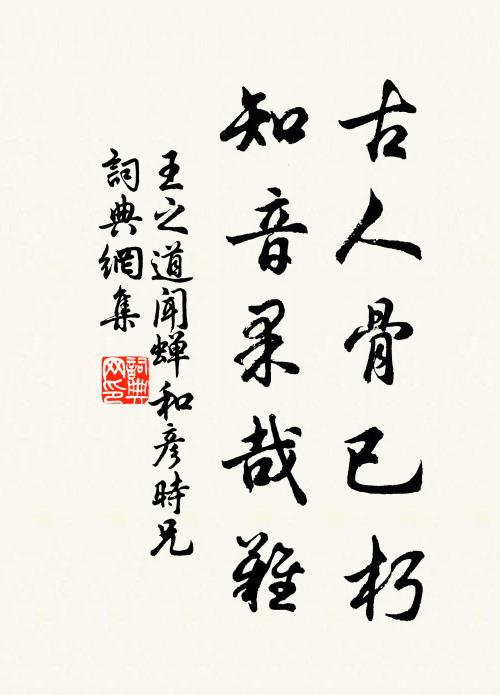 古人骨已朽
知音果哉難
王之道聞蟬和彥時兄
詞典網集
詞典網印